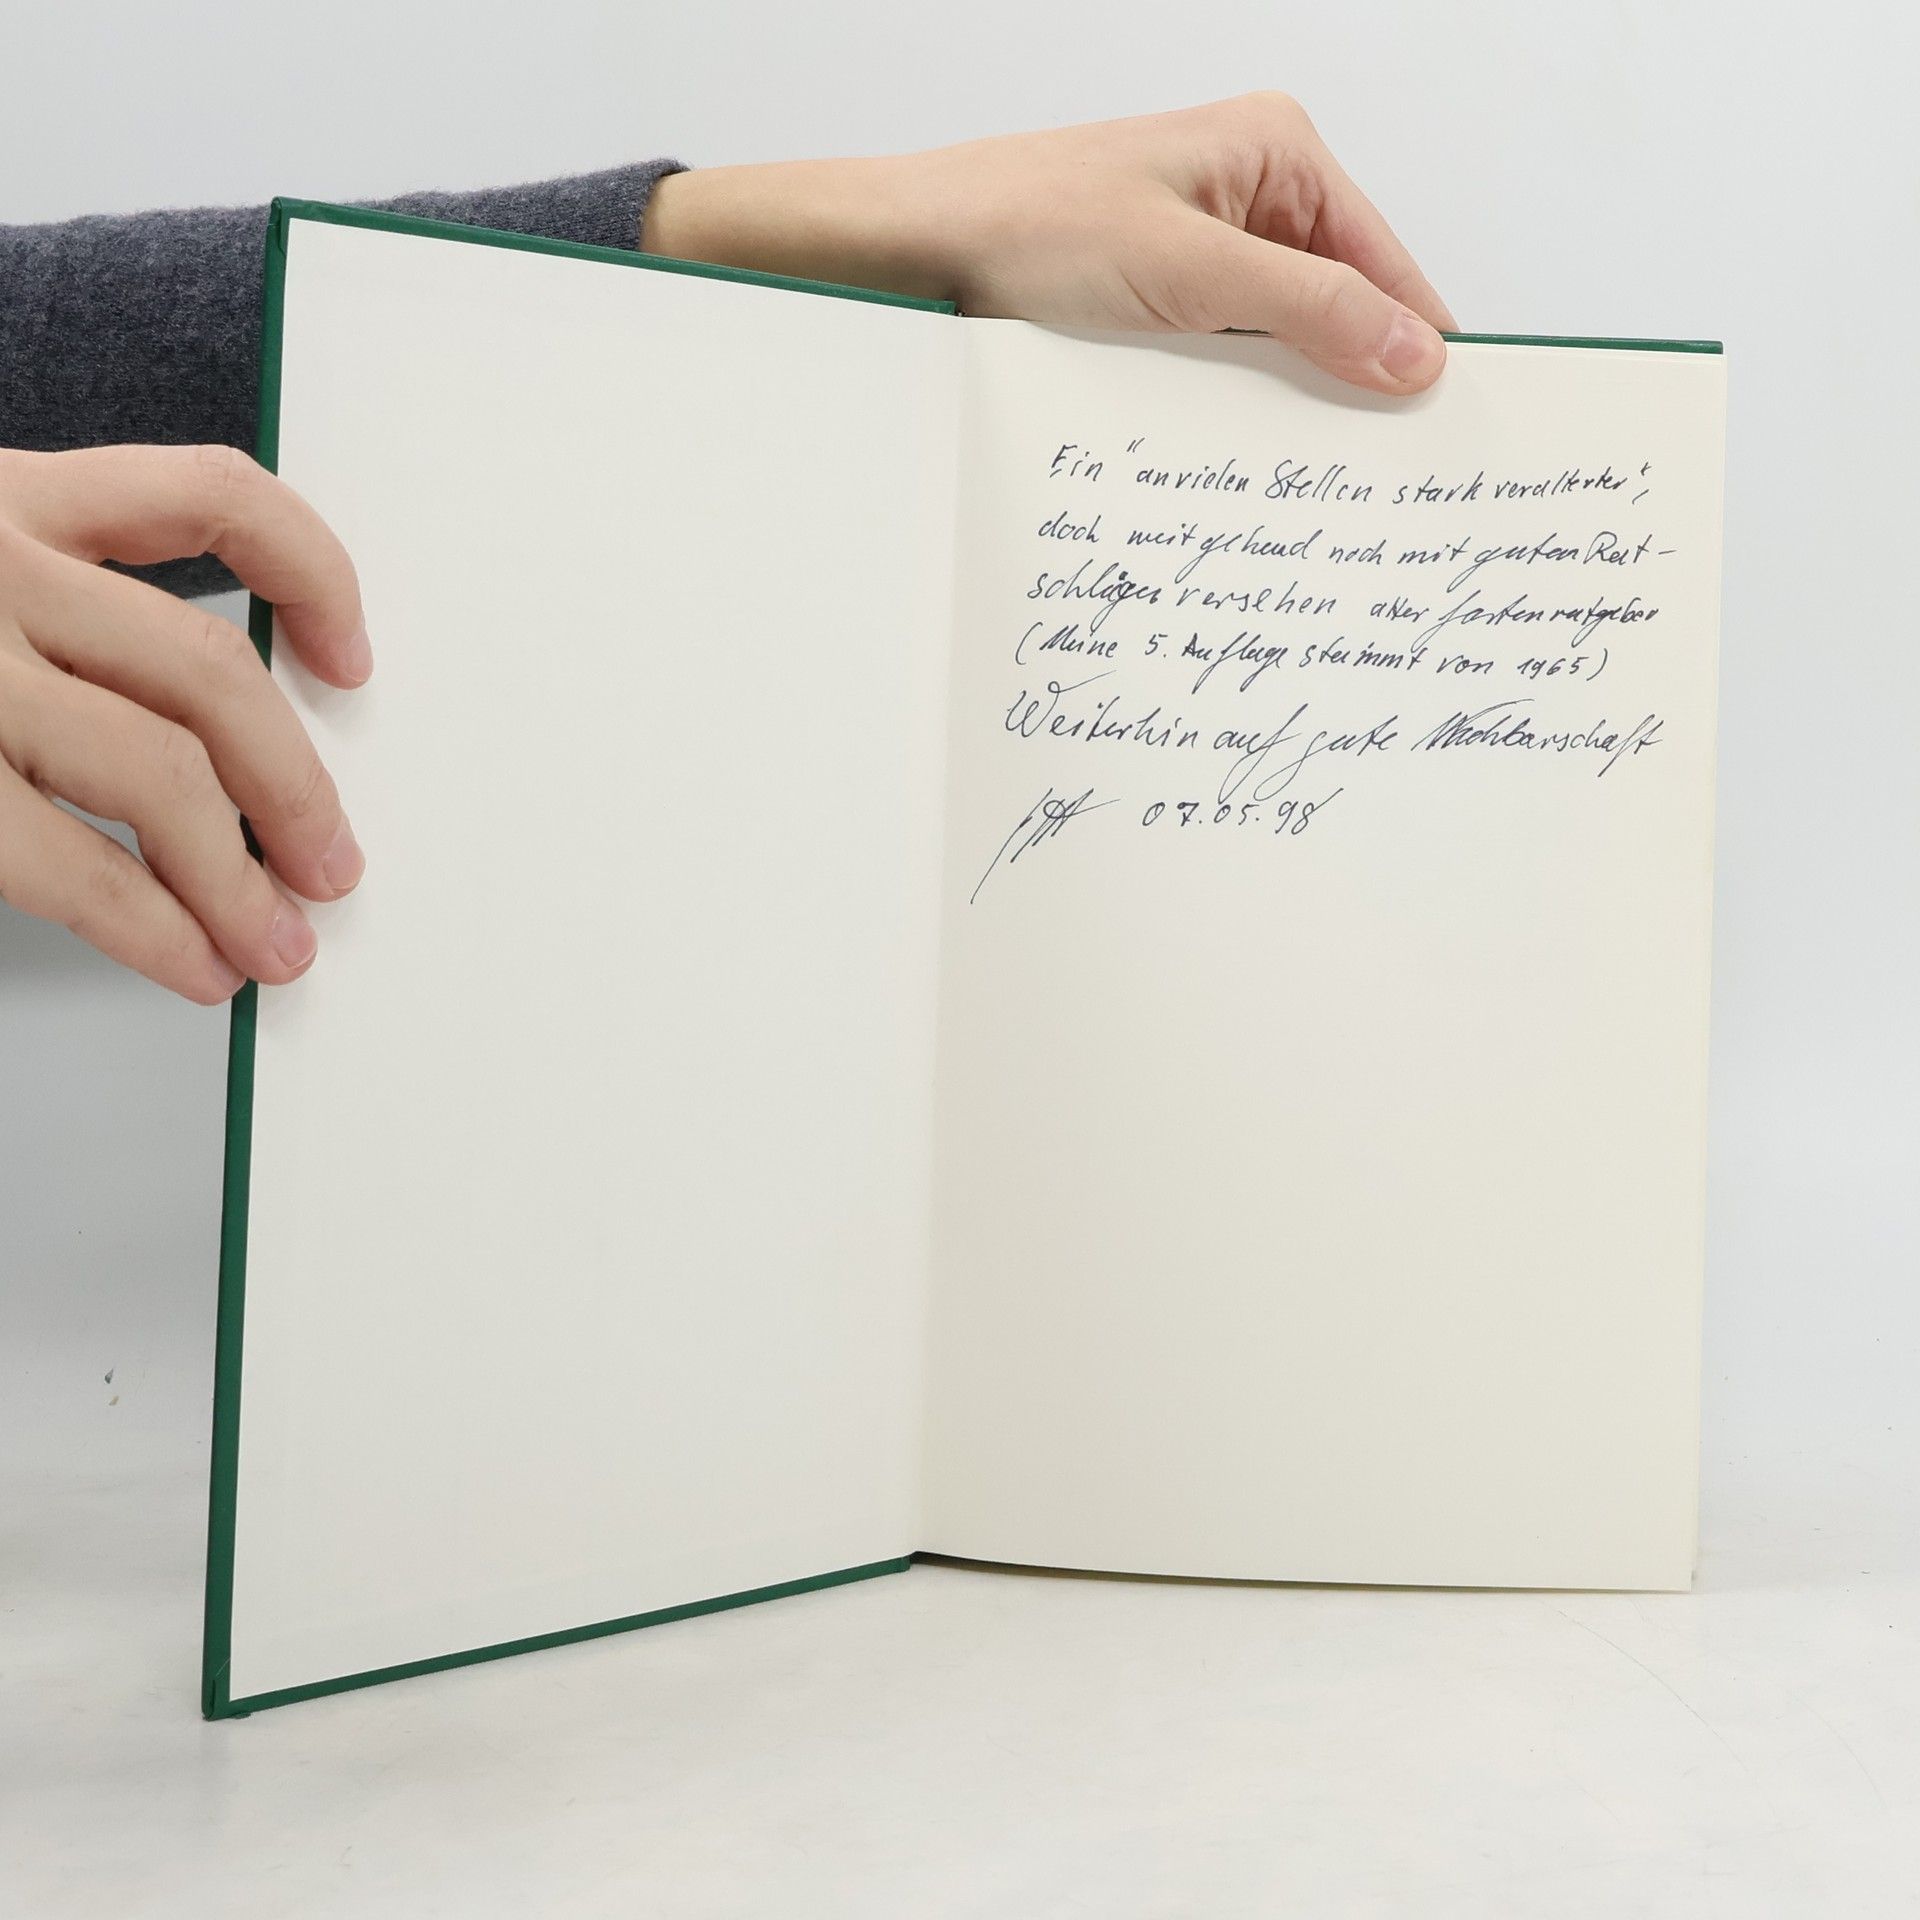 Ein "an vielen Stellen stark veralterter",
doch weitgehend noch mit guten Rat-
schlägen versehen alter Gartenratgeber
(Meine 5. Auflage stammt von 1965)
Weiterhin auf gute Nachbarschaft
07.05.98